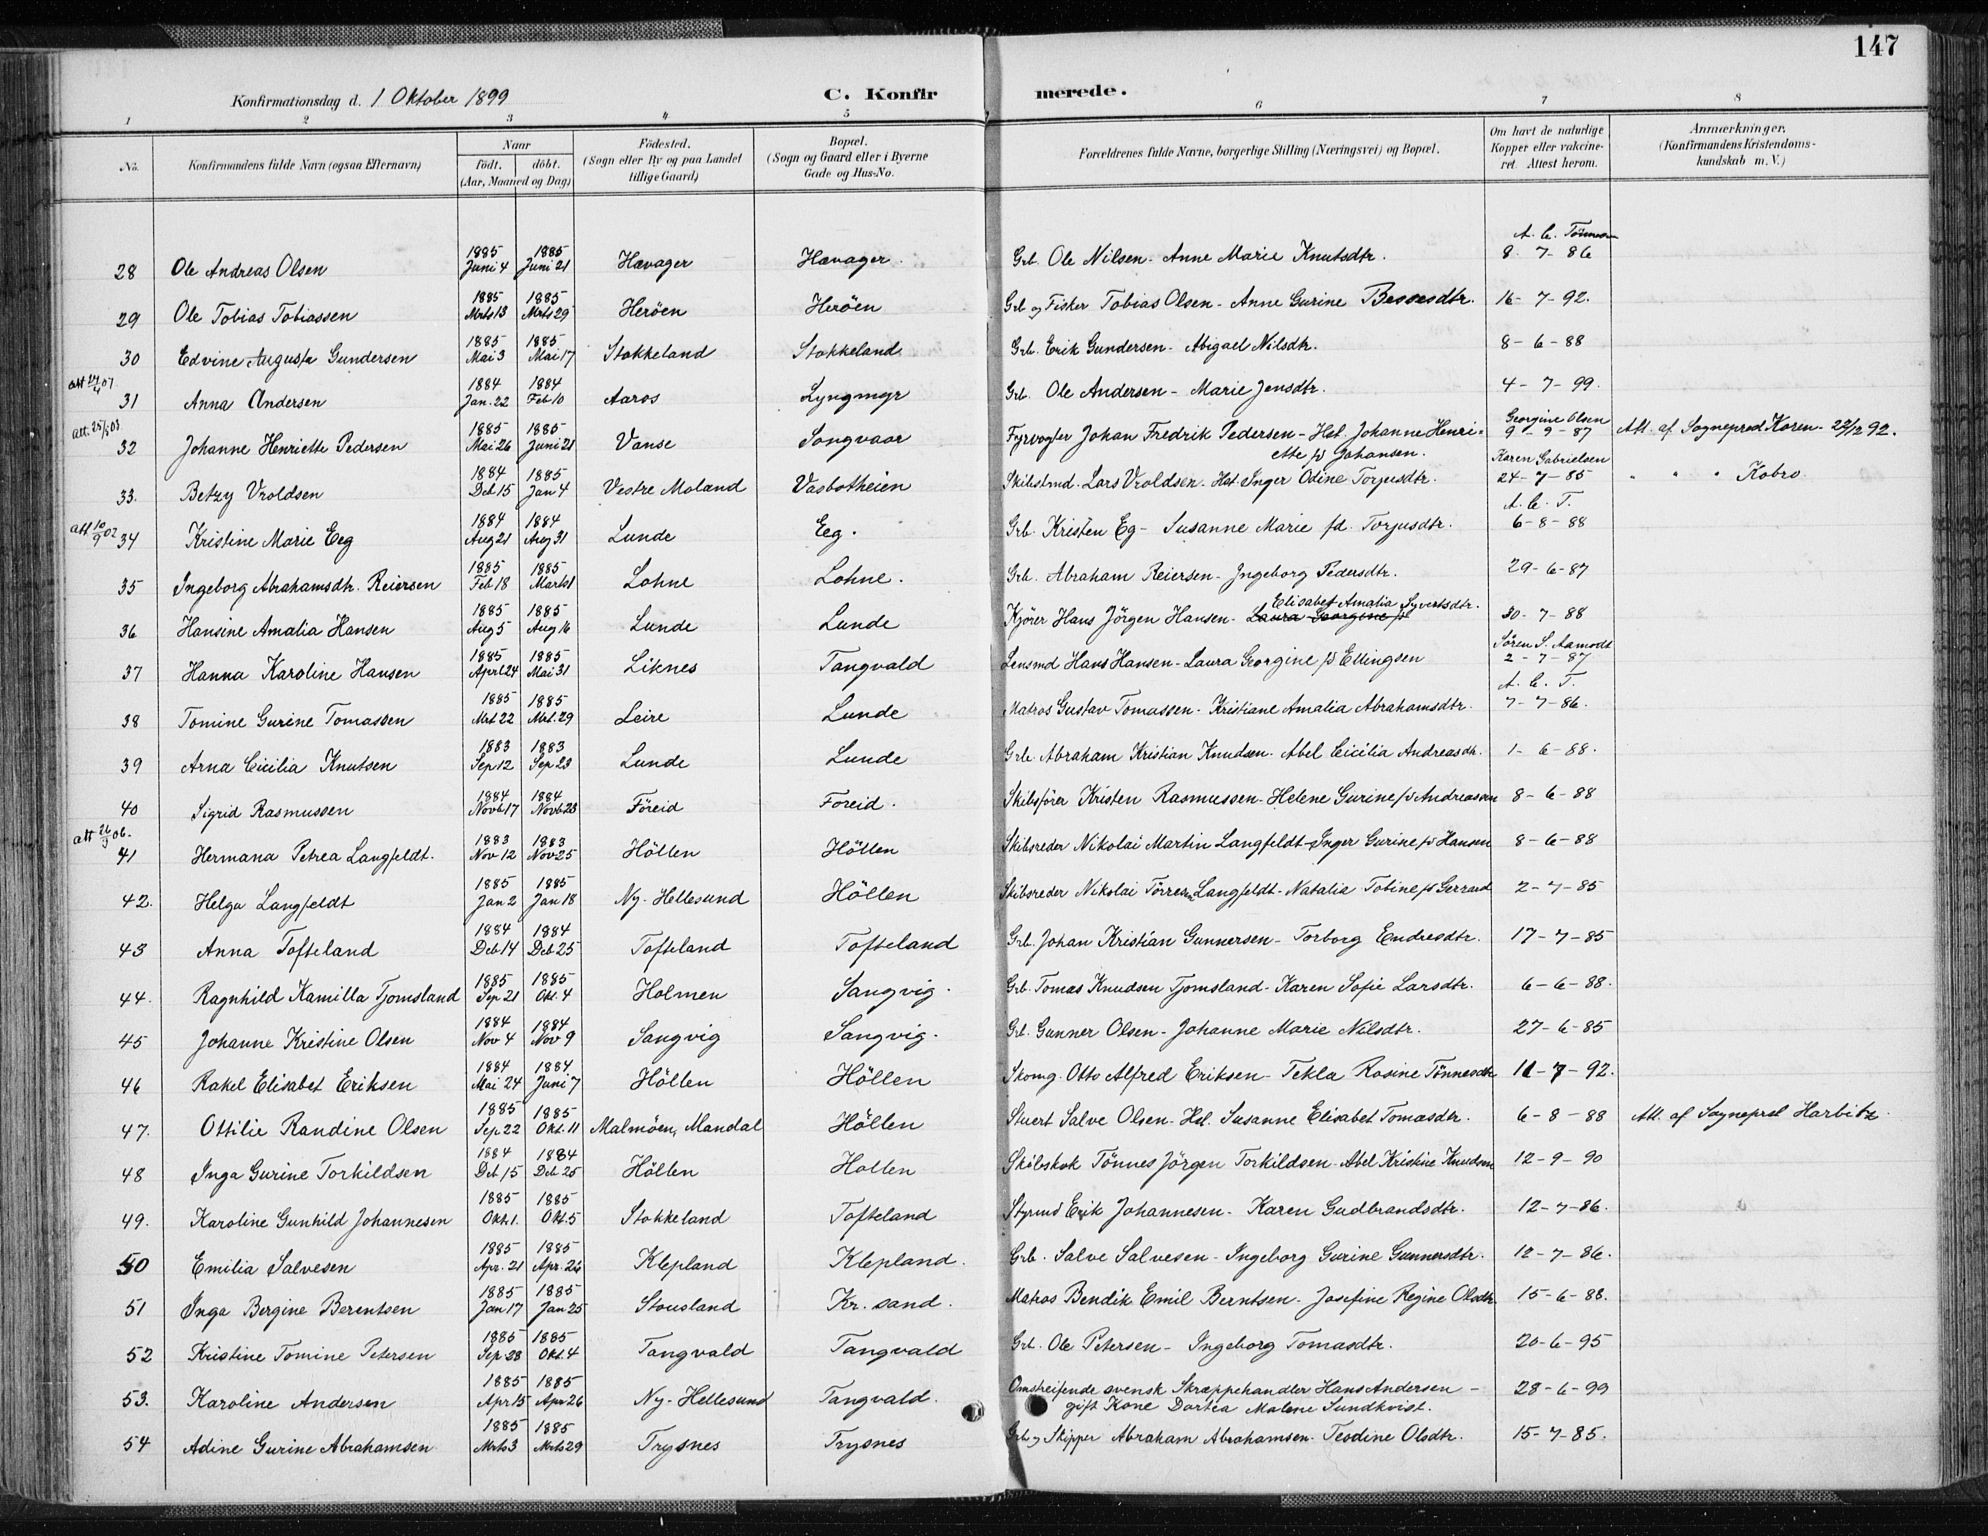 147
Konfirmationsdag d. 1 Oktober 1899 C. Konfirmerede.
1 2 3 4 5 6 7 8
No. Konfirmandens fulde Navn (ogsaa Efternavn) Naar født. døbt. (Aar, Maaned og Dag) Fødested. (Sogn eller By og paa Landet tillige Gaard) Bopæl. (Sogn og Gaard eller i Byerne Gade og Hus-No. Forældrenes fulde Navne, borgerlige Stilling (Næringsvei) og Bopæl. Om havt de naturlige Kopper eller vakcineret. Attest herom. Anmærkninger. (Konfirmandens Kristendomskundskab m. V.)
28 Ole Andreas Olsen 1885 Juni 4 1885 Juni 21 Hævager Hævager. Grb. Ole Nilsen - Anne Marie Knutsdtr. A. C. 8-7-86
29 Ole Tobias Tobiassen 1885 Mrts 13 1885 Mrts 29 Heröen Heröen Grb og Fisker Tobias Olsen - Anne Gurine Bessesdtr. 16-7-92.
30 Edvine Auguste Gundersen 1885 Mai 3 1885 Mai 17 Stokkeland Stokkeland Grb. Erik Gundersen - Abigael Nilsdtr. 8-6-88
att 24/4 07
31 Anna Andersen 1884 Jan. 22 1884 Feb 10 Aaros Lyngmyr Grb. Ole Andersen - Marie Jensdtr. 4-7-99.
att. 25/5 03.
32 Johanne Henriette Pedersen 1885 Mai 26 1885 Juni 21 Vanse Songvaar Fyrvogter Johan Fredrik Pedersen - Hst. Johanne Henriette fd Johansen. Georgine Olsen 9-9-87 Att. af Sogneprest Koren - 22/12 92.
33. Betzy Vroldsen 1884 Deb 15 1885 Jan 4 Vestre Moland Vasbotheien Skibstmd. Lars Vroldsen. Hst. Inger Odine Torjusdtr. Karen Gabrielsen 24-7-85 " " " Kobro.
att 10/9 02
34 Kristine Marie Eeg 1884 Aug 21 1884 Aug 31 Lunde Eeg. Grb. Kristen Eg - Susanne Marie fd. Torjusdtr. A. C. T. 6-8-88
35 Ingeborg Abrahamsdtr. Reiersen 1885 Feb 18 1885 Marts 1 Lohne Lohne. Grb. Abraham Reiersen - Ingeborg Pedersdtr. 29-6-87
36 Hansine Amalia Hansen 1885 Aug 5 1885 Aug 16 Lunde Lunde Kjörer Hans Jörgen Hansen - Laura Georgine fd Elisabet Amalia Syvertsdtr. 30-7-88
37 Hanna Karoline Hansen 1885 April 24 1885 Mai 31 Liknes Tangvald Lensmd Hans Hansen - Laura Georgine fd Ellingsen Sören S. Aamodt 2-7-87
38 Tomine Gurine Tomassen 1885 Mrt 22 1885 Mrt. 29 Leire Lunde Matros Gustav Tomassen - Kristiane Amalia Abrahamsdtr. A. C. T. 7-7-86.
39 Arna Cicilia Knutsen 1883 Sep 12 1883 Sep 23 Lunde Lunde Grb. Abraham Kristian Knudsen. Abel Cicilia Andreasdtr. 1-6-88.
40 Sigrid Rasmussen 1884 Novb 17 1884 Novb 23 Föreid Foreid. Skibsförer Kristen Rasmussen - Helene Gurine fd Andreassen 8-6-88
att 26/9 06.
41 Hermana Petrea Langfeldt. 1883 Nov 12 1883 Nov 25 Höllen Höllen Skibsreder Nikolai Martin Langfeldt - Inger Gurine fd Hansen 8-6-88
42. Helga Langfeldt 1885 Jan 2 1885 Jan 18 Ny-Hellesund Höllen Skibsreder Nikolai Törres Langfeldt - Natalia Tobine fd Gerrard 2-7-85
43 Anna Tofteland 1884 Deb 14 1884 Deb 25 Tofteland Tofteland Grb. Johan Kristian Gunnersen - Torborg Endresdtr. 17-7-85
44. Ragnhild Kamilla Tjomsland 1885 Sep 21 1885 Okt. 4 Holmen Sangvig. Grb. Tomas Knudsen Tjomsland - Karen Sofie Larsdtr. 6-6-88.
45 Johanne Kristine Olsen 1884 Nov 4 1884 Nov 9 Sangvig Sangvig. Grb. Gunner Olsen - Johanne Marie Nilsdtr. 27-6-85
46 Rakel Elisabet Eriksen 1884 Mai 24 1884 Juni 7 Höllen Höllen Skomg. Otto Alfred Eriksen - Tekla Rosine Tönnesdtr 11-7-92.
47. Ottilie Randine Olsen 1885 Sep 22 1885 Okt. 11 Malmöen, Mandal Höllen Stuert Salve Olsen - Hst. Susanne Elisabet Tomasdtr. 6-8-88 Att. af Sogneprst Harbitz
48 Inga Gurine Torkildsen 1884 Deb 15 1884 Deb 25 Höllen Hollen Skibskok Tönnes Jörgen Torkildsen - Abel Kristine Knudsen 12-9-90
49. Karoline Gunhild Johannesen 1885 Okt 1. 1885 Okt 5 Stokkeland Tofteland Styrmd Erik Johannesen - Karen Gudbrandsdtr. 12-7-86.
50 Emilia Salvesen 1885 Apr. 21 1885 Apr. 26 Klepland Klepland. Grb. Salve Salvesen - Ingeborg Gurine Gunnersdtr. 12-7-86.
51 Inga Bergine Berentsen 1885 Jan 17 1885 Jan 25 Stousland Kr. sand. Matros Bendik Emil Berntsen - Josefine Regine Olsdtr. 15-6-88.
52 Kristine Tomine Petersen 1885 Sep 23 1885 Okt. 4 Tangvald Tangvald Grb. Ole Petersen - Ingeborg Tomasdtr. 20-6-95
53. Karoline Andersen 1885 Apr 15 1885 Apr 26 Ny-Hellesund Tangvald. Omstreifende svensk Skræppehandler Hans Andersen - gift Kone Dortea Malene Sundkvist. 28-6-99
54 Adine Gurine Abrahamsen 1885 Mrts 3 1885 Mrts 29 Trysnes Trysnes Grb og Skipper Abraham Abrahamsen - Teodine Olsdtr. 15-7-85.